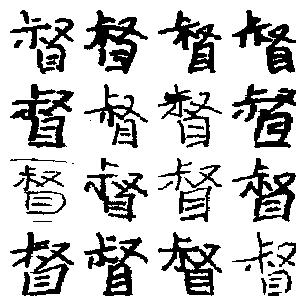 督督督督
督督督督
督督督督
督督督督